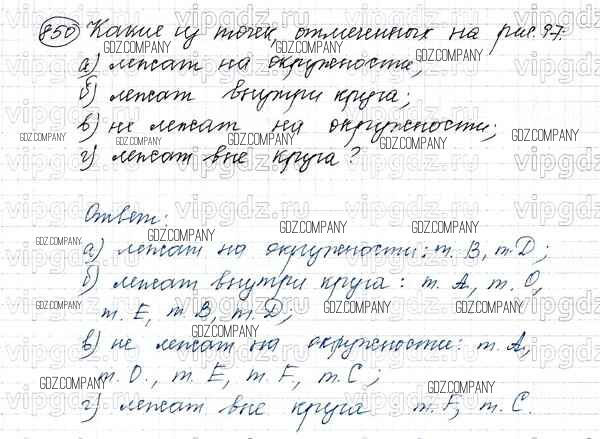 850 Какие из точек, отмеченных на рис. 97.
а) лежат на окружности;
б) лежат внутри круга;
в) не лежат на окружности;
г) лежат вне круга?
Ответ:
а) лежат на окружности: т. В, т. D;
б) лежат внутри круга: т. А, т. О,
т. Е, т. В, т. D;
в) не лежат на окружности: т. А,
т. О., т. Е, т. F, т. С;
г) лежат вне круга т. F, т. С.